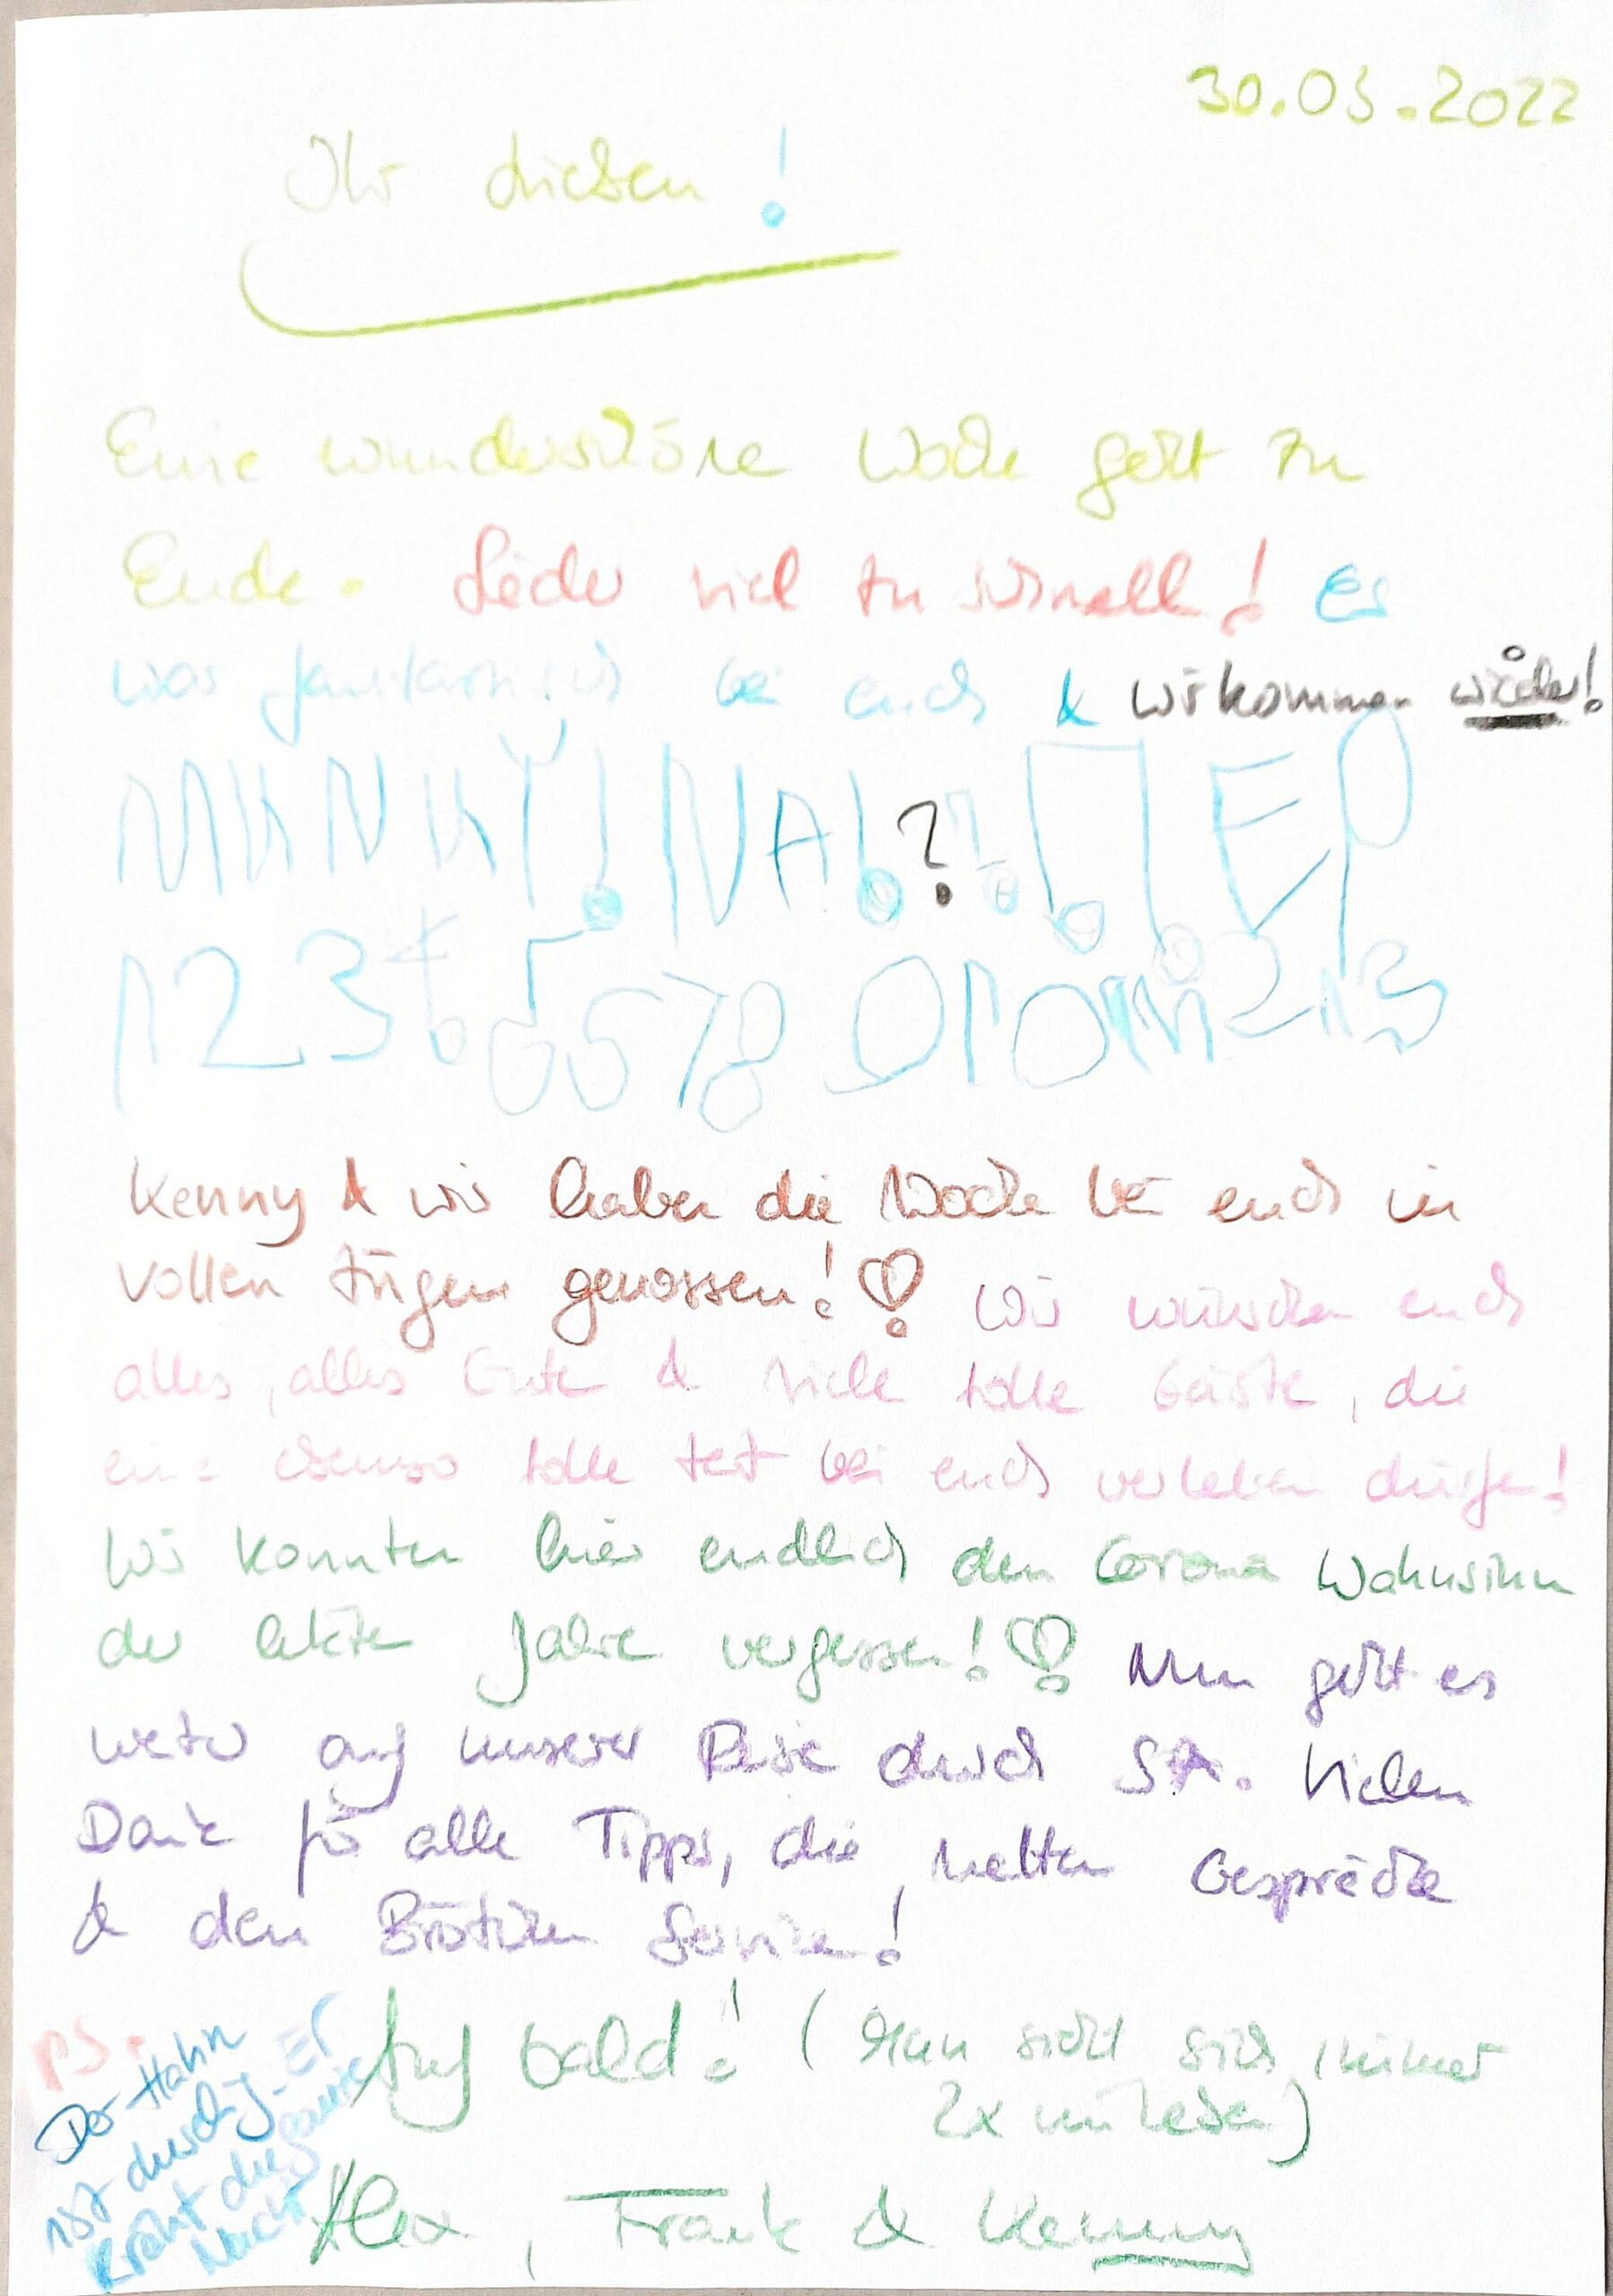 30.03.2022
Ihr Lieben!
Eine wunderschöne Woche geht zu
Ende. Leider viel zu schnell! Es
war fantastisch bei euch & wir kommen wieder!
! NA!?
1 2 3 4 5 6 7 8 9 10 11 12 13
Kenny & wir haben die Woche bei euch in
vollen Zügen genossen! Wir wünschen euch
alles, alles Gute & viele tolle Gäste, die
eine ebenso tolle Zeit bei euch verleben dürfen!
Wir konnten hier endlich den Corona Wahnsinn
der letzten Jahre vergessen! Nun geht es
weiter auf unserer Reise durch SA. Vielen
Dank für alle Tipps, die netten Gespräche
& den Brötchen Service!
Auf bald! (Man sieht sich immer
2x im Leben)
Alex, Frank & Kenny
PS.
Der Hahn
ist durch, Er
kräht die ganze
Nacht